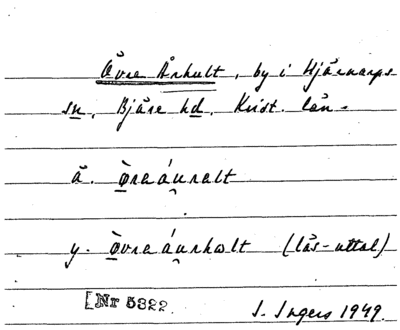 Övre Århult, by i Hjärnarps
sn, Bjäre hd, Krist. län.
ä. òreáuralt
y. òvreáurhalt (läs-uttal)
[Nr 5322
I. Ingers 1949.